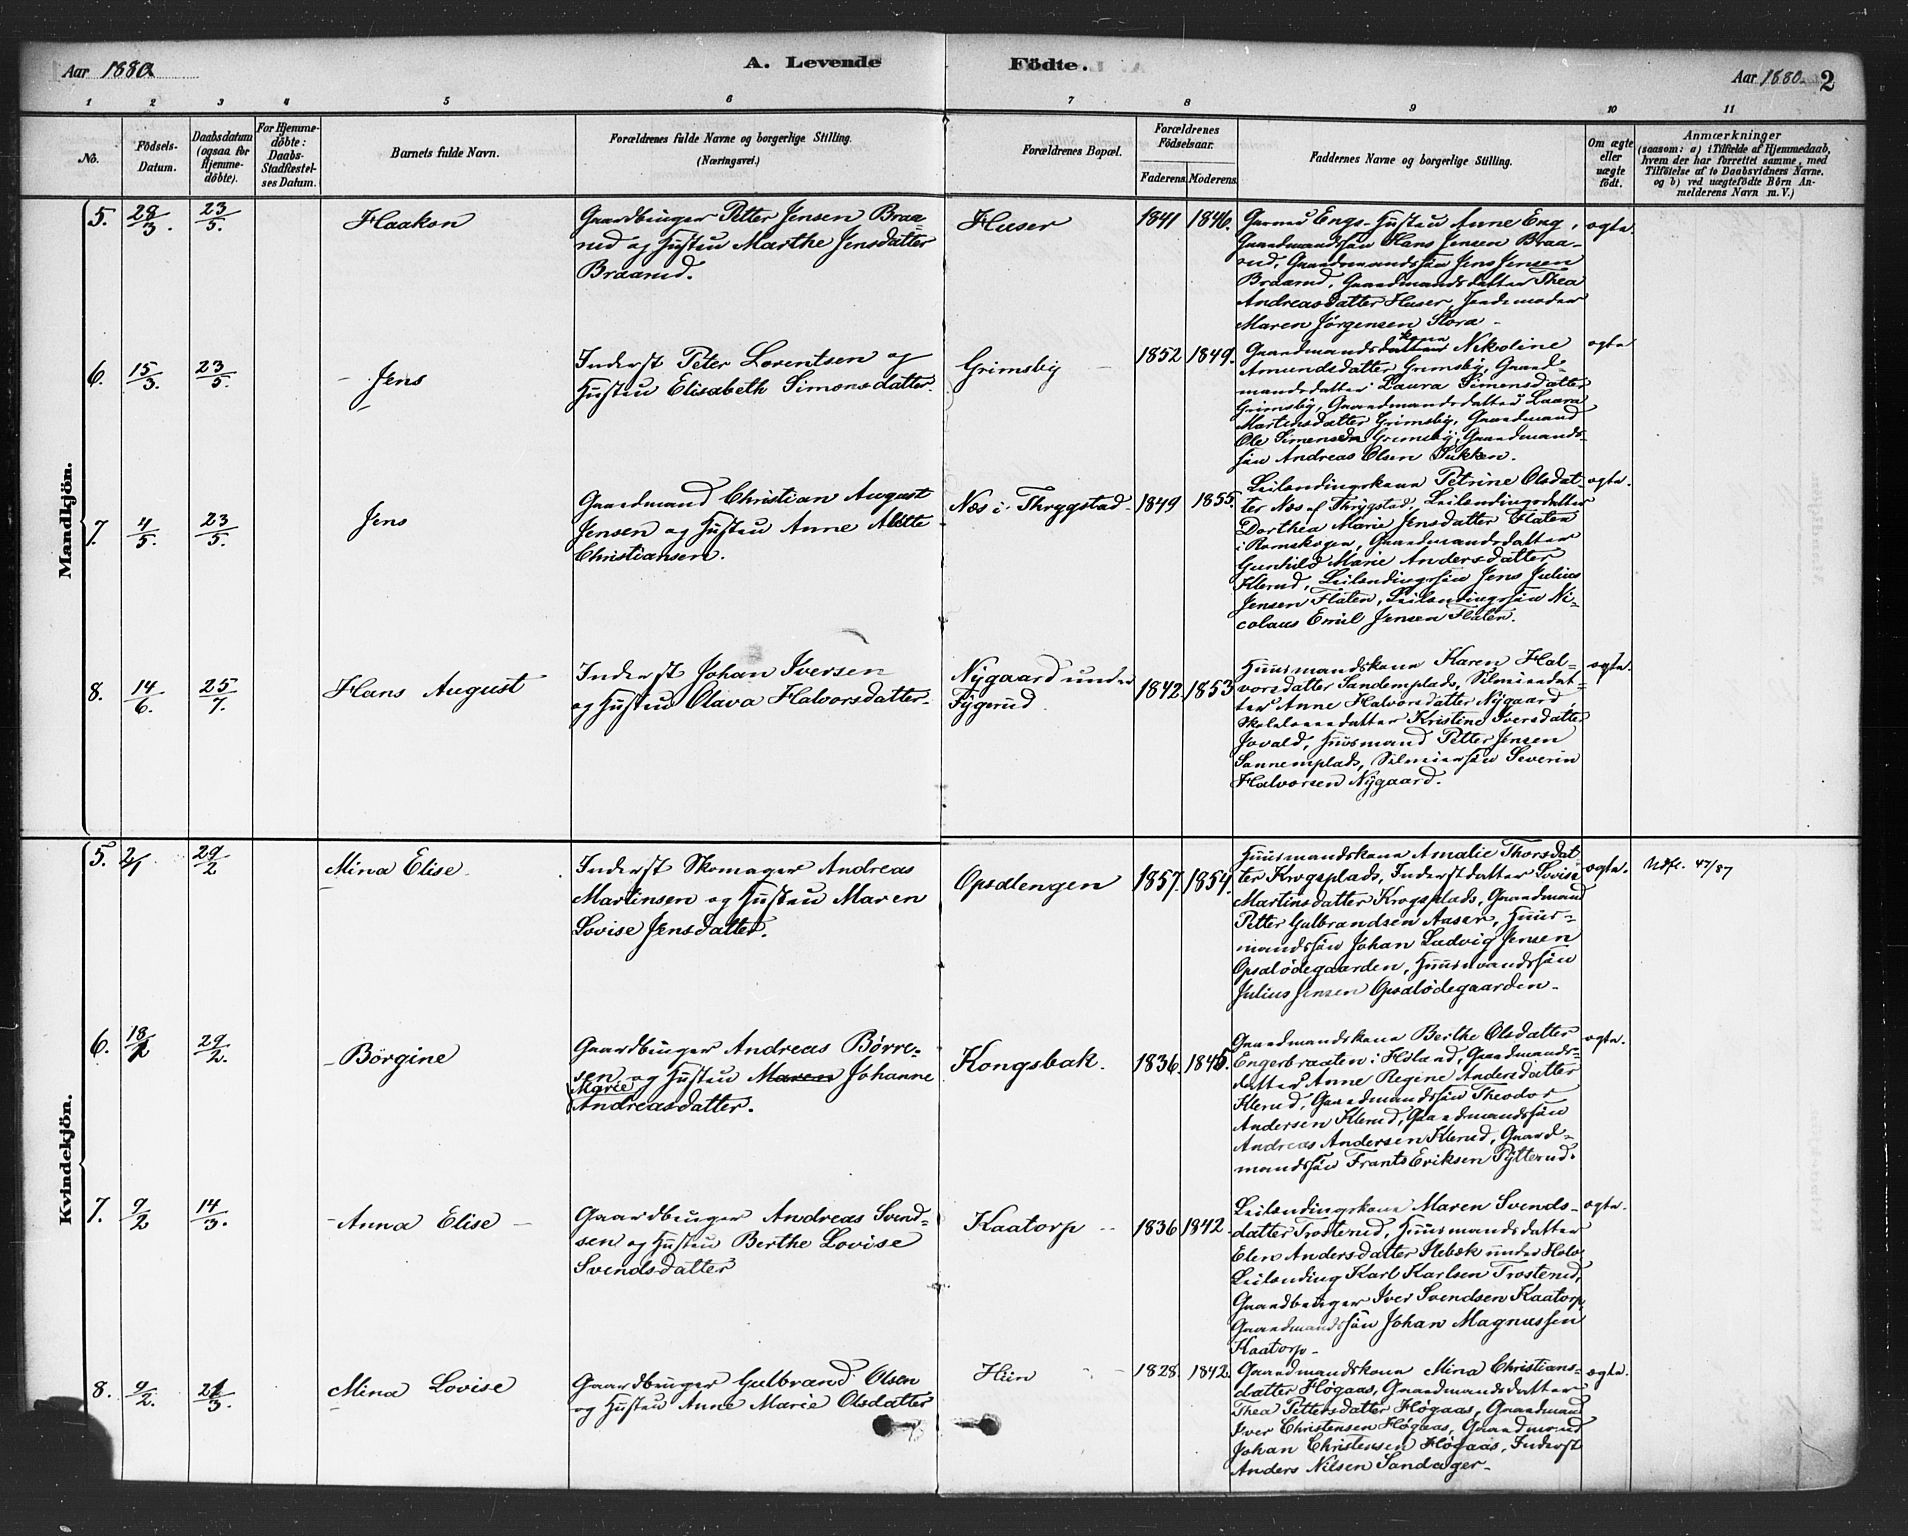 Aar 1880
A. Levende Födte.
Aar 1880. 2
1 2 3 4 5 6 7 8 9 10 11
No.
Födsels-
Datum.
Daabsdatum
(ogsaa for
Hjemme-
döbte).
For Hjemme-
döbte:
Daabs-
Stadfæstel-
ses Datum.
Barnets fulde Navn.
Forældrenes fulde Navne og borgerlige Stilling.
(Næringsvei.)
Forældrenes Bopæl.
Forældrenes
Födselsaar.
Faderens. Moderens.
Faddernes Navne og borgerlige Stilling.
Om ægte
eller
uægte
födt.
Anmærkninger
(saasom: a) i Tilfælde af Hjemmedaab,
hvem der har forrettet samme, med
Tilföielse af to Daabsvidners Navne.
og b) ved uægtefödte Börn An-
melderens Navn m. V.)
Mandkjön.
5. 28/3. 23/5.
Haakon
Gaardbruger Petter Jensen Braa-
rud og Hustru Marthe Jensdatter
Braarud.
Huser
1841 1846.
Gaardmandssøn Hans Jensen Braa-
rud, Gaardmandssøn Jens Jensen
Braarud, Gaardmandsdatter Thea
Andreasdatter Huser, Jordemoder
Maren Jørgensen Stora -
ægte.
6. 15/3. 23/5.
Jens
Inderst Peter Lorentsen og
Hustru Elisabeth Simonsdatter.
Grimsby
1852 1849.
Nikoline
Amundsdatter Grimsby, Gaard-
mandsdatter Laura Simensdatter
Grimsby, Gaardmandsdatter Laura
Martinsdatter Grimsby, Gaardmand
Ole Simensen Grimsby, Gaardmands-
søn Andreas Olsen Sukken.
ægte
7. 4/5. 23/5.
Jens
Gaardmand Christian August
Jensen og Hustru Anne Alette
Christiansen.
Næs i Thrygstad
1849 1855.
Leilændingskone Petrine Olsdat-
ter Næs af Thrygstad, Leilændingsdatter
Dorthea Marie Jensdatter Flaten
i Romskogen, Gaardmandsdatter
Gunhild Marie Andersdatter
Klerud, Leilændingssøn Jens Julius
Jensen Flaten, Leilændingssøn Ni-
colaus Emil Jensen Flaten.
ægte.
8. 14/6. 25/7.
Hans August
Inderst Johan Iversen
og Hustru Olava Halvorsdatter.
Nygaard under
Tygerud.
1842. 1853
Huusmandskone Karen Hal-
vorsdatter Sandemplads,
Anne Halvorsdatter Nygaard,
Kristine Iversdatter
Huusmand Petter Jensen
Sannemplads, Severin
Halvorsen Nygaard.
ægte.
Kvindekjön.
5. 2/1 29/2
Mina Elise.
Inderst Skomager Andreas
Martinsen og Hustru Maren
Lovise Jensdatter.
Opsdlengen
1857. 1854.
Huusmandskone Amalie Thorsdat-
ter Krogsplads, Inderstdatter Lovise
Martinsdatter Krogsplads, Gaardmand
Petter Gulbrandsen Aaser, Huus-
mandssøn Johan Ludvig Jensen
Opsalødegaarden, Huusmandssøn
Julius Jensen Opsalødegaarden-
ægte.
Udfl. 47/87
6. 18/1 29/2.
Börgine
Gaardbruger Andreas Børre-
sen og Hustru Maren Johanne
Marie
Andreasdatter.
Kongsbak.
1836. 1845.
Gaardmandskone Berthe Olsdatter
Engerbraaten i Høland, Gaardmands-
datter Anne Regine Andersdatter
Klerud, Gaardmandssøn Theodor
Andersen Klerud, Gaardmandssøn
Andreas Andersen Klerud, Gaard-
mandssøn Frants Eriksen Tytterud.
ægte.
7. 9/2 14/3.
Anna Elise
Gaardbruger Andreas Svend-
sen og Hustru Berthe Lovise
Svendsdatter
Kaatorp
1836 1842.
Leilændingskone Maren Svends-
datter Trosterud, Huusmandsdatter
Elen Andersdatter Slebæk under
Leilænding Karl Karlsen Trosterud,
Gaardbruger Iver Svendsen Kaatorp,
Gaardmandssøn Johan Magnussen
Kaatorp-
ægte.
8. 9/2. 21/3.
Mina Lovise
Gaardbruger Gulbrand Olsen
og Hustru Anne Marie Olsdatter
Hiin
1828. 1842.
Gaardmandskone Mina Christians-
datter Høgaas, Gaardmandsdatter
Thea Pettersdatter Høgaas, Gaardmand
Iver Christensen Høgaas, Gaardmand
Johan Christensen Høgaas, Inderst
Anders Nilsen Sandager-
ægte.